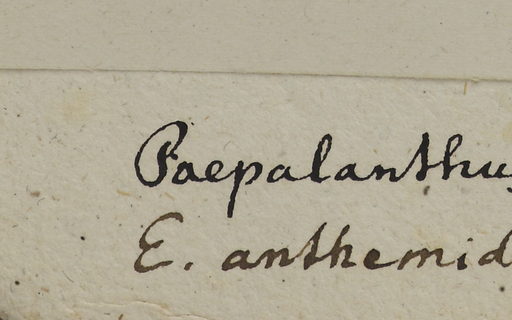 Paepalanthus
E. anthemid